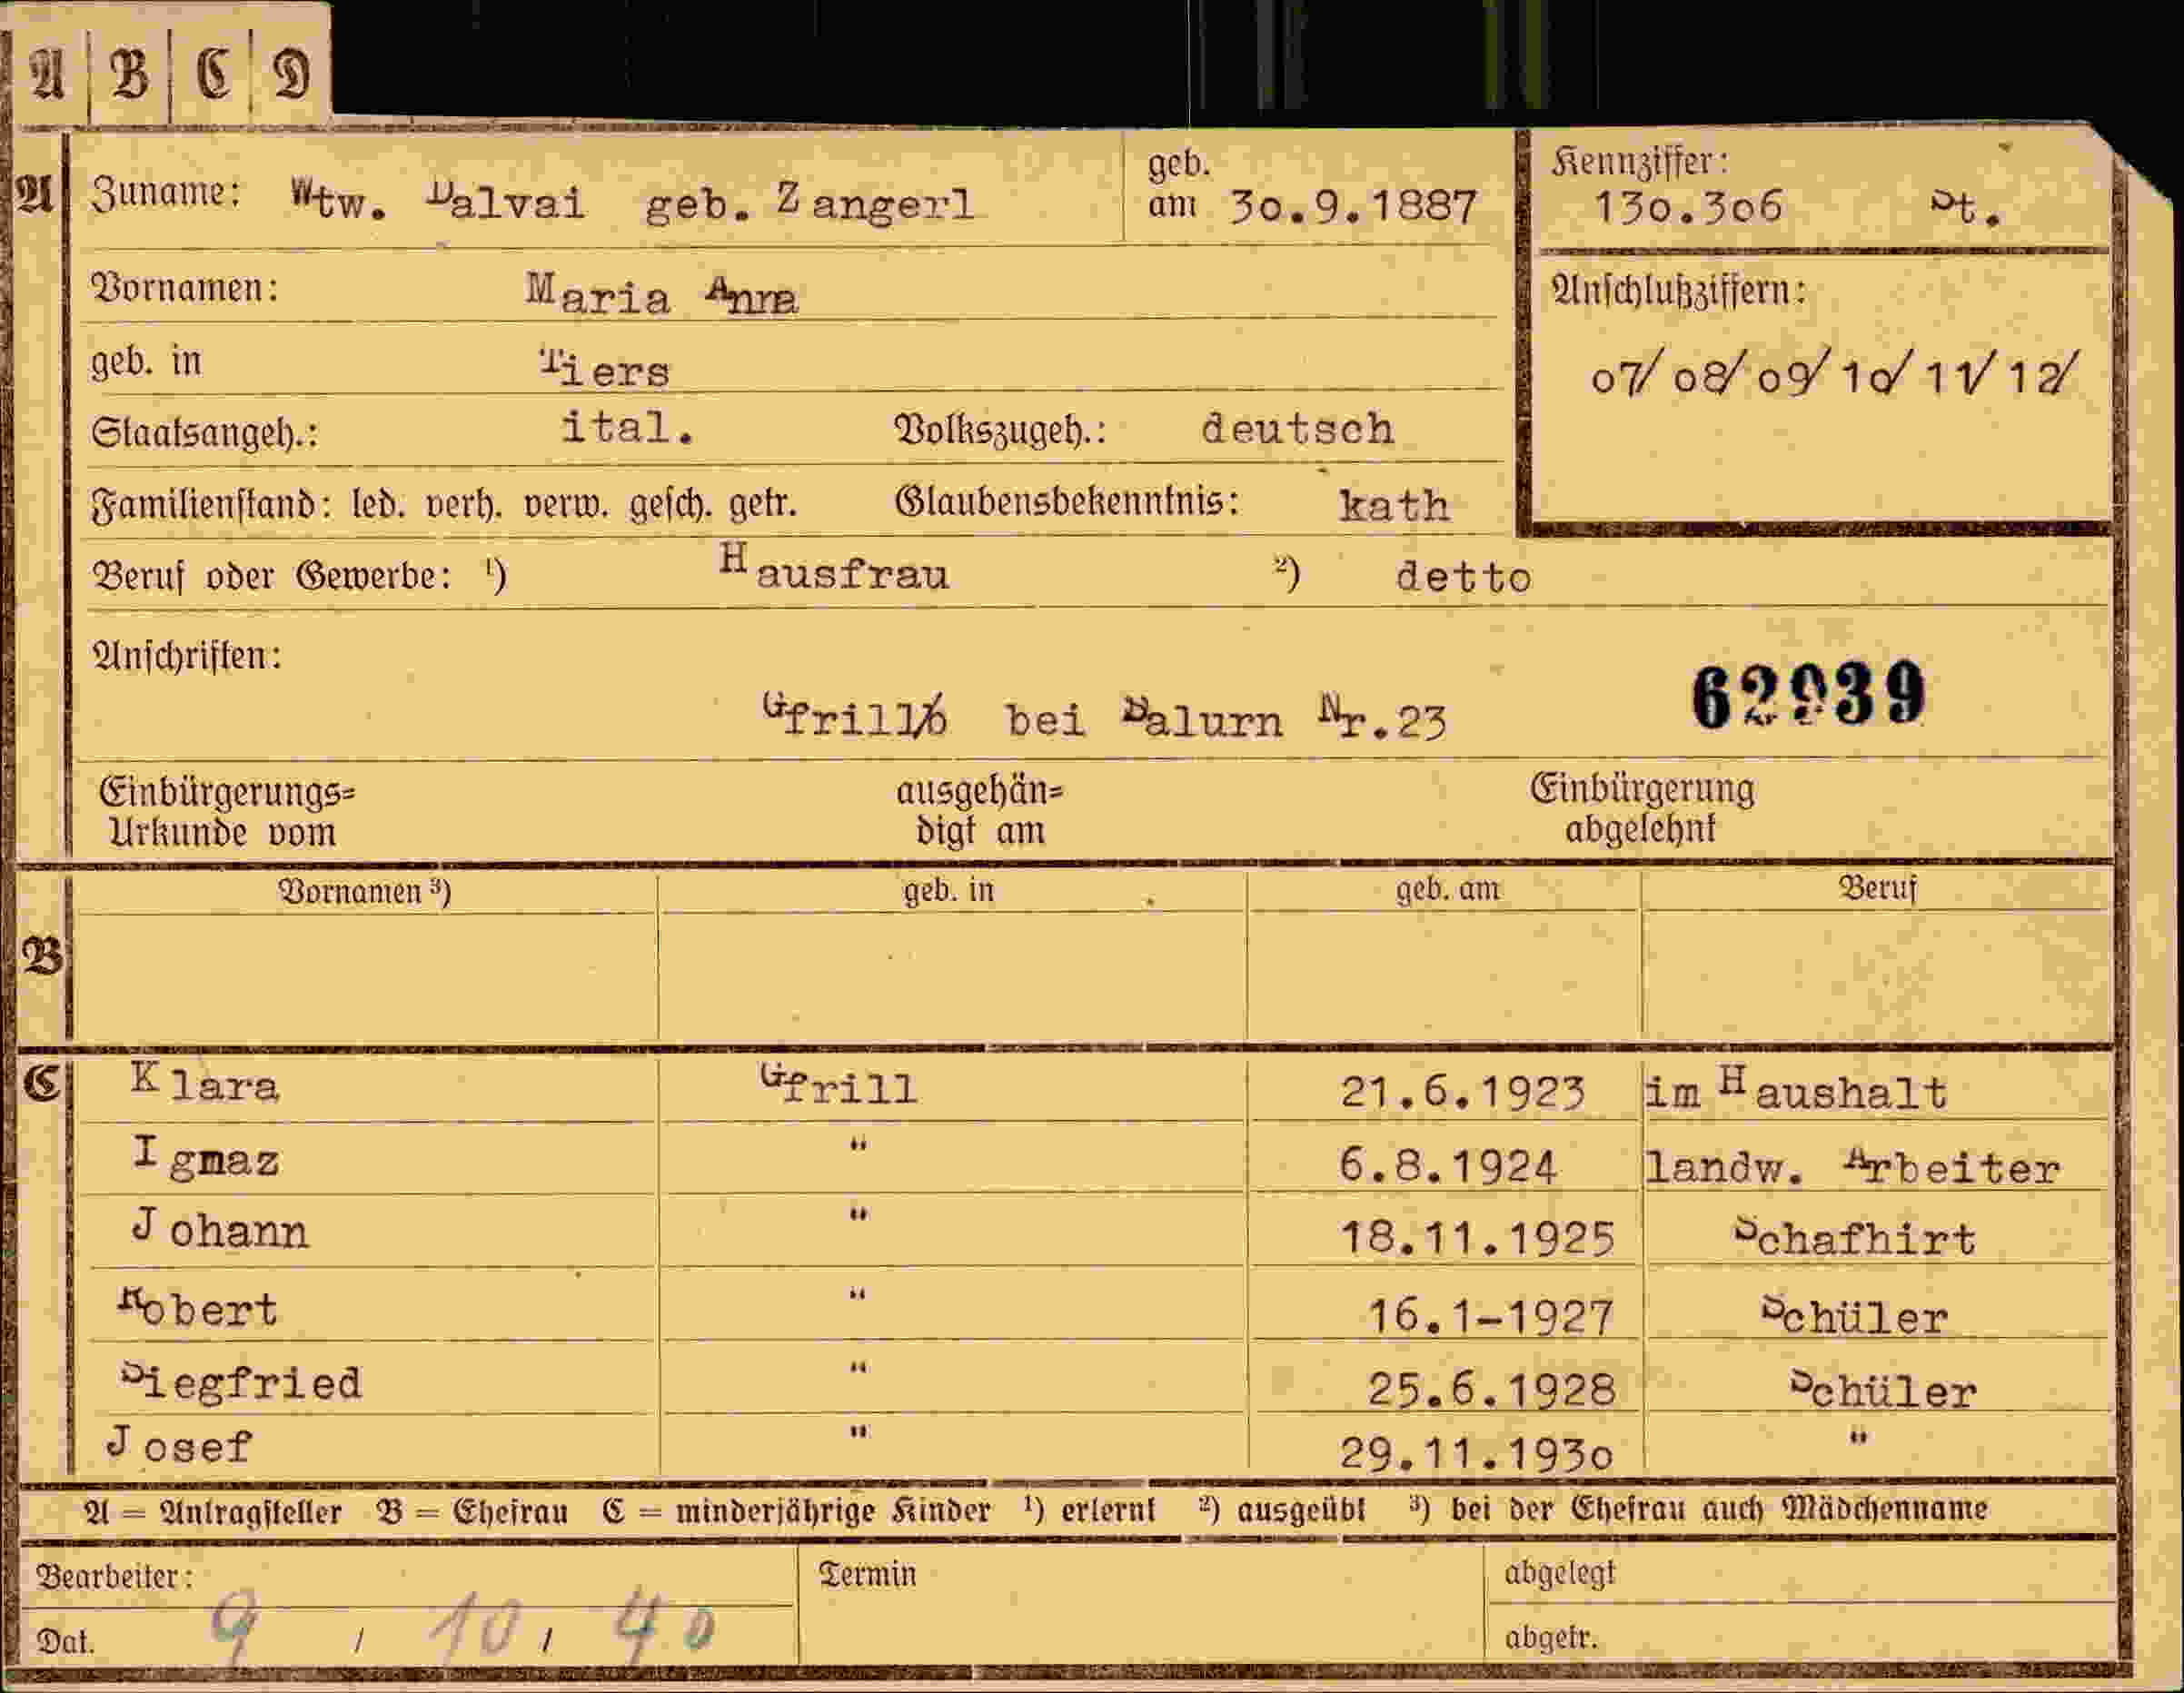 A B C D
A Zuname: Wtw. Dalvai geb. Zangerl geb. am 30.9.1887
Kennziffer: 130.306 St.
Vornamen: Maria Anna
Anschlußziffern:
07/ 08/ 09/ 10/ 11/ 12/
geb. in Tiers
Staatsangeh.: ital. Volkszugeh.: deutsch
Familienstand: led. verh. verw. gesch. getr. Glaubensbekenntnis: kath
Beruf oder Gewerbe: ¹) Hausfrau ²) detto
Anschriften:
Gfrill bei Salurn Nr.23
Einbürgerungs= Urkunde vom ausgehän= digt am Einbürgerung abgelehnt
B Vornamen ³) geb. in geb. am Beruf
C Klara Gfrill 21.6.1923 im Haushalt
Ignaz " 6.8.1924 landw. Arbeiter
Johann " 18.11.1925 Schafhirt
Robert " 16.1-1927 Schüler
Siegfried " 25.6.1928 Schüler
Josef " 29.11.1930 "
A = Antragsteller B = Ehefrau C = minderjährige Kinder ¹) erlernt ²) ausgeübt ³) bei der Ehefrau auch Mädchenname
Bearbeiter: Termin abgelegt
Dat. 9 / 10 / 40 abgetr.